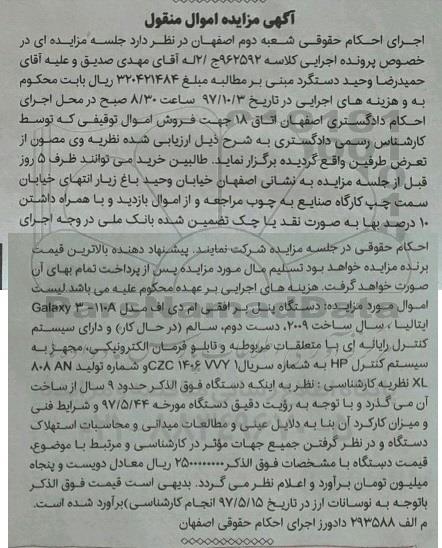 آگهی مزایده اموال منقول
اجرای احکام حقوقی شعبه دوم اصفهان در نظر دارد جلسه مزایده ای در
خصوص پرونده اجرایی کلاسه ۹۶۲۵۹۲ج /۲له آقای مهدی صدیق و علیه آقای
حمیدرضا وحید دستگرد مبنی بر مطالبه مبلغ ۳۲۰۴۲۱۴۸۴ ریال بابت محکوم
به و هزینه های اجرایی در تاریخ ۹۷/۱۰/۳ ساعت ۸/۳۰ صبح در محل اجرای
احکام دادگستری اصفهان اتاق ۱۸ جهت فروش اموال توقیفی که توسط
کارشناس رسمی دادگستری به شرح ذیل ارزیابی شده نظریه وی مصون از
تعرض طرفین واقع گردیده برگزار نماید. طالبین خرید می توانند ظرف ۵ روز
قبل از جلسه مزایده به نشانی اصفهان خیابان وحید باغ زیار انتهای خیابان
سمت چپ کارگاه صنایع به چوب مراجعه و از اموال بازدید و با همراه داشتن
۱۰ درصد بها به صورت نقد یا چک تضمین شده بانک ملی در وجه اجرای
احکام حقوقی در جلسه مزایده شرکت نمایند. پیشنهاد دهنده بالاترین قیمت
برنده مزایده خواهد بود تسلیم مال مورد مزایده پس از پرداخت تمام بهای آن
صورت خواهد گرفت. هزینه های اجرایی بر عهده محکوم علیه می باشد.لیست
اموال مورد مزایده: دستگاه پنل بر افقی ام دی اف مدل Galaxy ۳-۱۱۰A
ایتالیا ، سال ساخت ۲۰۰۹، دست دوم، سالم (در حال کار) و دارای سیستم
کنترل رایانه ای با متعلقات مربوطه و تابلو فرمان الکترونیکی، مجهز به
سیستم کنترل HP به شماره سریال۱ CZC ۱۴۰۶ VVY و شماره تولید ۸۰۸ AN
XL نظریه کارشناسی : نظر به اینکه دستگاه فوق الذکر حدود ۹ سال از ساخت
آن می گذرد و با توجه به رؤیت دقیق دستگاه مورخه ۹۷/۵/۴۴ و شرایط فنی
و میزان کارکرد آن بنا به دلایل عینی و مطالعات میدانی و محاسبات استهلاک
دستگاه و در نظر گرفتن جمیع جهات مؤثر در کارشناسی و مرتبط با موضوع،
قیمت دستگاه با مشخصات فوق الذکر ۲۵۰۰۰۰۰۰۰۰ ریال معادل دویست و پنجاه
میلیون تومان برآورد و اعلام نظر می گردد. بدیهی است قیمت فوق الذکر
باتوجه به نوسانات ارز در تاریخ ۹۷/۵/۱۵ انجام کارشناسی)برآورد شده است.
م الف ۲۹۳۵۸۸ دادورز اجرای احکام حقوقی اصفهان